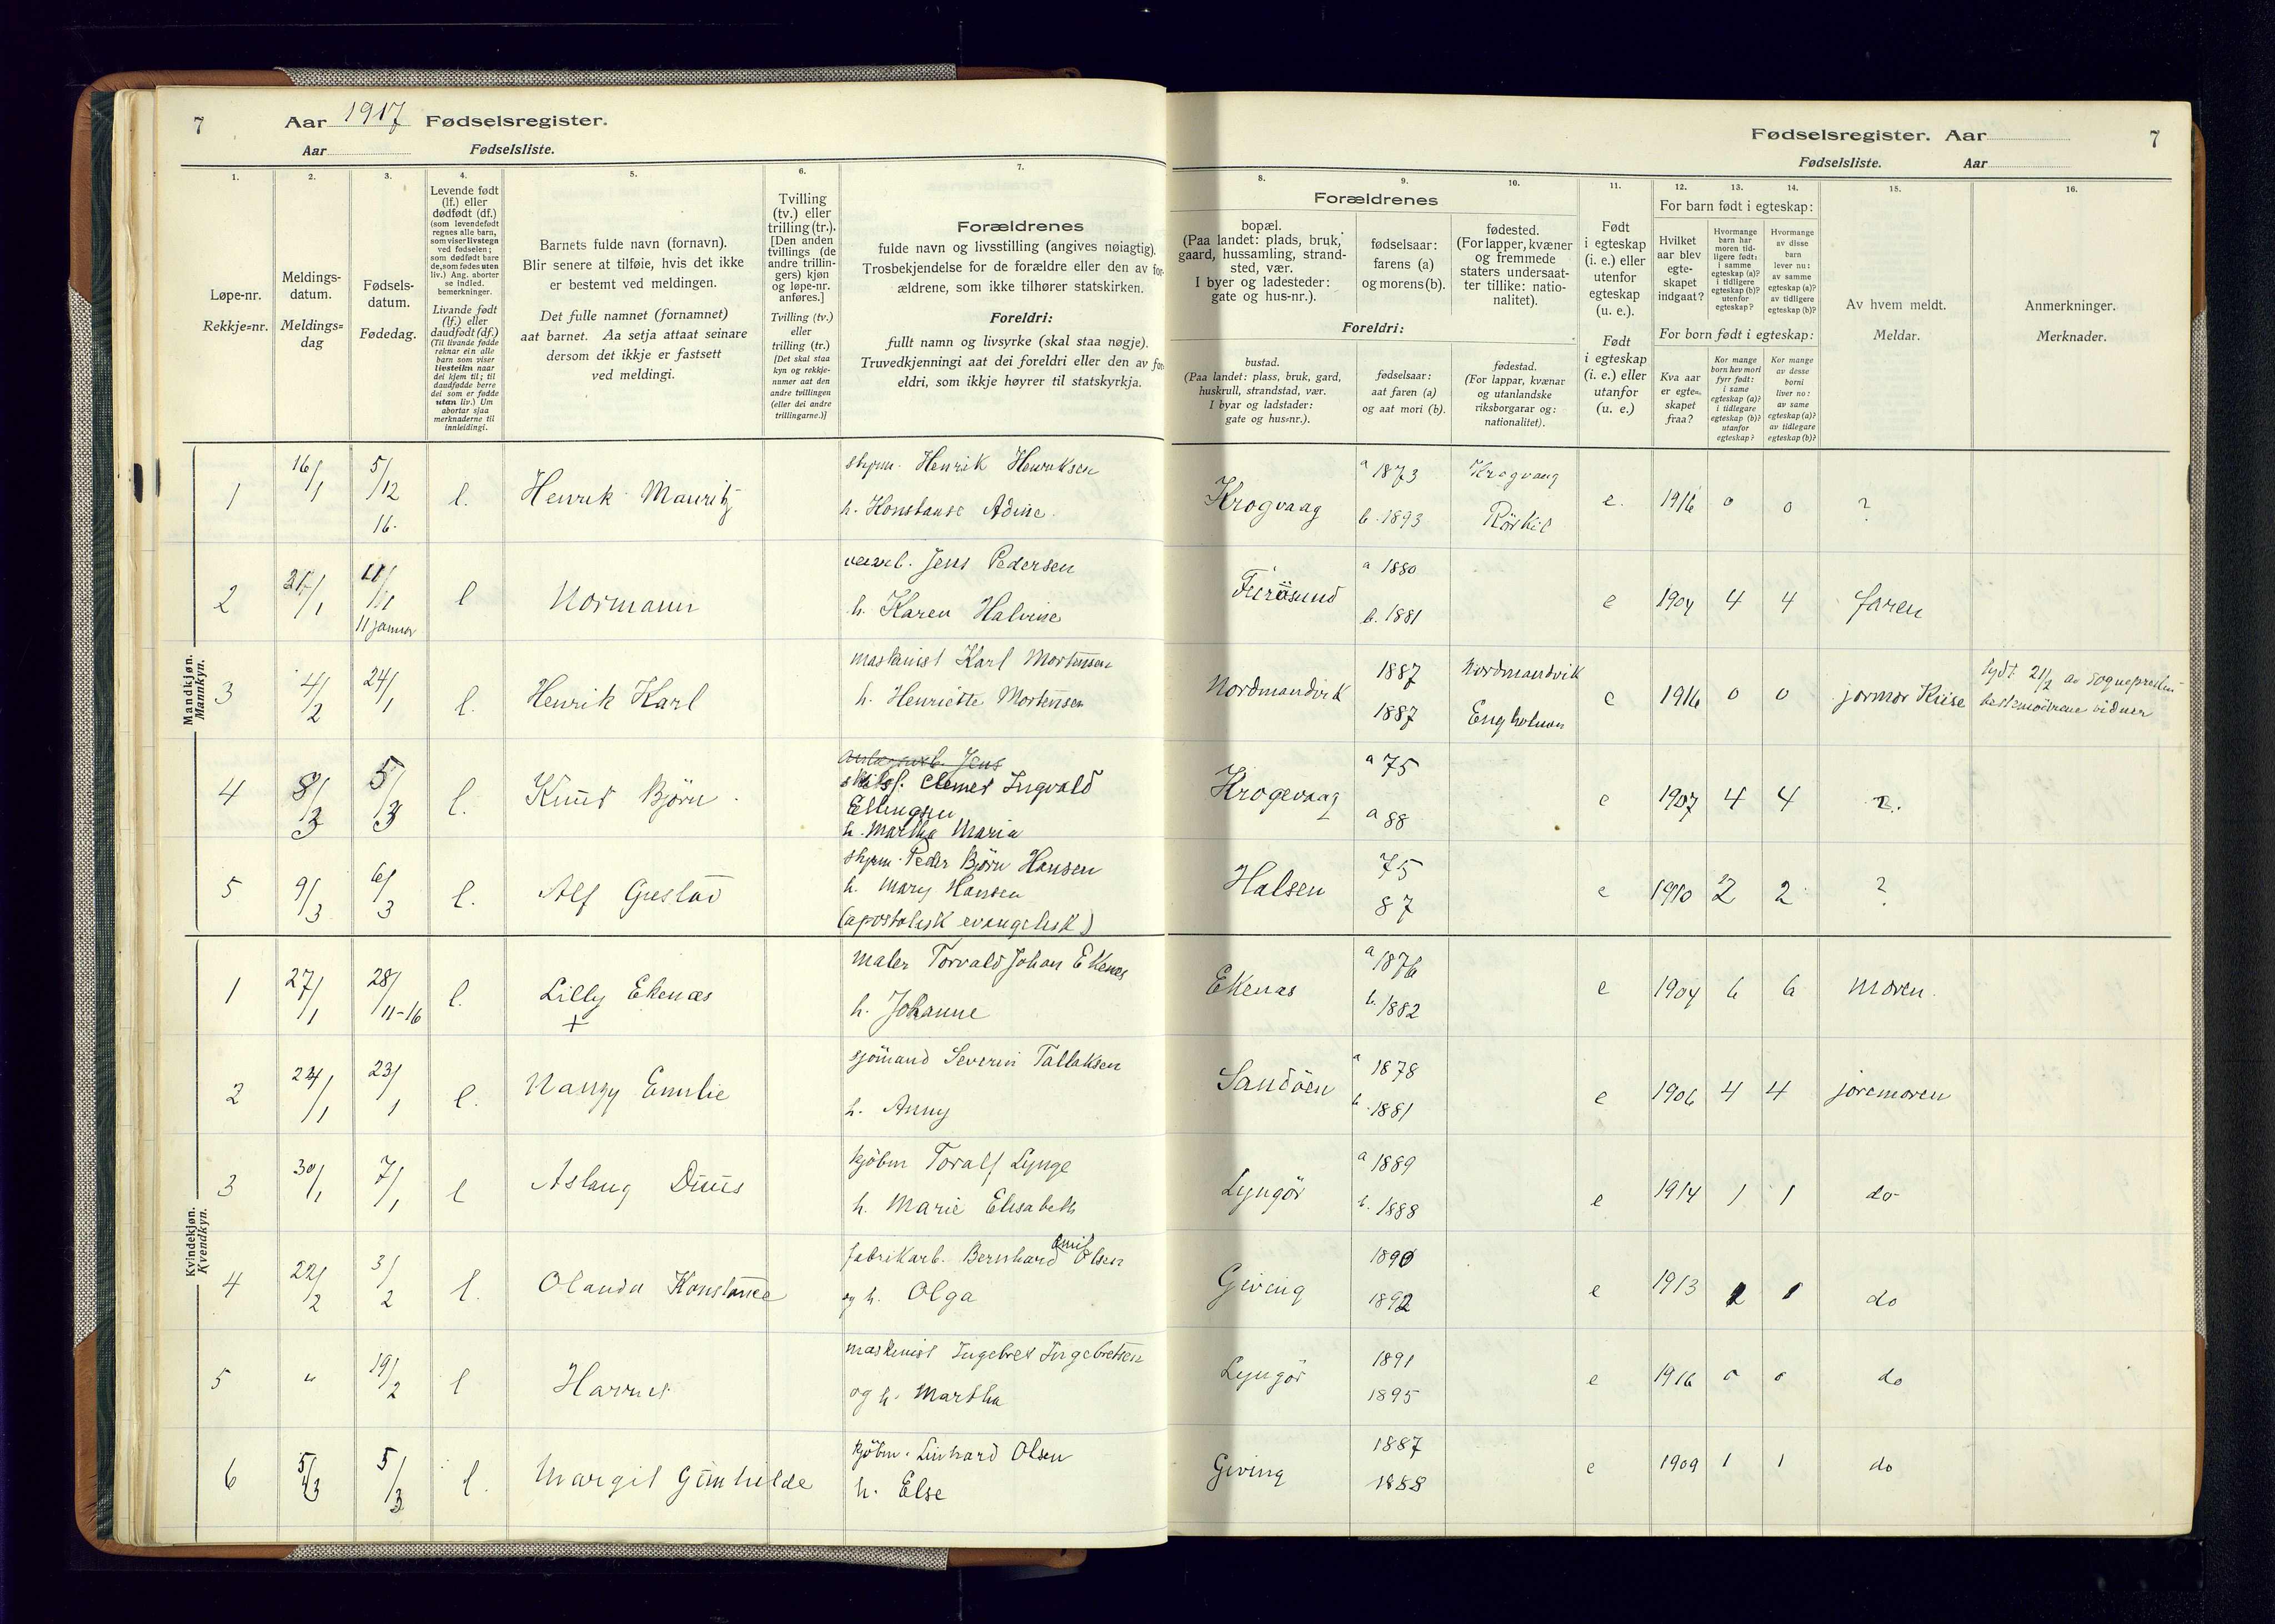 7 Aar 1917 Fødselsregister.
Aar Fødselsliste.
1. 2. 3. 4. 5. 6. 7.
Løpe-nr.
Rekkje=nr.
Meldings-
datum.
Meldings=
dag
Fødsels-
datum.
Fødedag.
Levende født
(lf.) eller
dødfødt (df.)
(som levendefødt
regnes alle barn,
som viser livstegn
ved fødselen;
som dødfødt bare
de, som fødes uten
liv.) Ang. aborter
se indled.
bemerkninger.
Livande født
(lf.) eller
daudfødt (df.)
(Til livande fødde
reknar ein alle
barn som viser
livsteikn naar
dei kjem til; til
daudfødde berre
dei som er fødde
utan liv.) Um
abortar sjaa
merknaderne til
innleidingi.
Barnets fulde navn (fornavn).
Blir senere at tilføie, hvis det ikke
er bestemt ved meldingen.
Det fulle namnet (fornamnet)
aat barnet. Aa setja attaat seinare
dersom det ikkje er fastsett
ved meldingi.
Tvilling
(tv.) eller
trilling (tr.).
[Den anden
tvillings (de
andre trillin-
gers) kjøn
og løpe-nr.
anføres.]
Tvilling (tv.)
eller
trilling (tr.)
[Det skal staa
kyn og rekkje-
numer aat den
andre tvillingen
(eller dei andre
trillingarne.)]
Forældrenes
fulde navn og livsstilling (angives nøiagtig).
Trosbekjendelse for de forældre eller den av for-
ældrene, som ikke tilhører statskirken.
Foreldri:
fullt namn og livsyrke (skal staa nøgje).
Truvedkjenningi aat dei foreldri eller den av for-
eldri, som ikkje høyrer til statskyrkja.
Mandkjøn.
Mannkyn.
1 16/1 5/12 16. l. Henrik Mauritz
styrm. Henrik Henriksen
h. Konstanse Adine.
2 21/1 11/1 l Normann
11 januar
veiarb. Jens Pedersen
h. Karen Halvine
3 4/2 24/1 l. Henrik Karl
maskinist Karl Mortensen
h. Henriette Mortensen
4 8/3 5/3 l. Knut Bjørn.
Jens
Clemet Ingvald
Ellingsen
h. Martha Maria
5 9/3 6/3 l. Alf Gustav
styrm. Peder Björn Hansen
h. Mary Hansen
(apostolisk evangelisk)
Kvindekjøn.
Kvendkyn.
1 27/1 28/11-16 l. Lilly Ekenæs
+
maler Torvald Johan Ekenes
h. Johanne
2 24/1 23/1 l. Nanny Emilie
sjömand Severin Tallaksen
h. Anny
3 30/1 7/1 l Aslaug Duus
kjöbm Toralf Lynge
h. Marie Elisabeth
4 22/2 3/2 l. Olanda Konstance
fabrikarb. Bernhard Emil Olsen
og h. Olga
5 " 19/2 l Harriet
maskinist Ingebret Ingebretsen
og h. Martha
6 5/3 5/3 l. Margit Gunhilde
kjöbm. Linhard Olsen
h. Else
Fødselsregister. Aar 7
Fødselsliste. Aar
8. 9. 10. 11. 12. 13. 14. 15. 16.
Forældrenes
bopæl.
(Paa landet: plads, bruk,
gaard, hussamling, strand-
sted, vær.
I byer og ladesteder:
gate og hus-nr.).
fødselsaar:
farens (a)
og morens (b).
fødested.
(For lapper, kvæner
og fremmede
staters undersaat-
ter tillike: natio-
nalitet).
Foreldri:
bustad.
(Paa landet: plass, bruk, gard,
huskrull, strandstad, vær.
I byar og ladstader:
gate og hus=nr.).
fødselsaar:
aat faren (a)
og aat mori (b).
fødestad.
(For lappar, kvænar
og utanlandske
riksborgarar og:
nationalitet).
Født
i egteskap
(i. e.) eller
utenfor
egteskap
(u. e.).
Født
i egteskap
(i. e.) eller
utanfor
(u. e.)
For barn født i egteskap:
Hvilket
aar blev
egte-
skapet
indgaat?
Hvormange
barn har
moren tid-
ligere født:
i samme
egteskap (a)?
i tidligere
egteskap (b)?
utenfor
egteskap?
Hvormange
av disse
barn
lever nu:
av samme
egteskap (a)?
av tidligere
egteskap (b)?
For born født i egteskap:
Kva aar
er egte=
skapet
fraa?
Kor mange
born hev mori
fyrr født:
i same
egteskap (a)?
i tidlegare
egteskap (b)?
utanfor
egteskap?
Kor mange
av desse
borni
liver no:
av same
egteskap (a)?
av tidlegare
egteskap (b)?
Av hvem meldt.
Meldar.
Anmerkninger.
Merknader.
Krogvaag a 1873 Krogvaag e. 1916 0 0 ?
b. 1893 Rörkil
a 1880 e 1904 4 4 faren
b. 1881
Nordmandvik 1887 Nordmandvik e 1916 0 0 jormor Kiese
1887 Engholmen
hjdt 21/2 av sognepresten
bestemödrene vidner
Krogevaag a 75 e 1907 4 4 ?.
a 88
Halsen 75 e 1910 2 2 ?
87
Ekenæs a 1876 e 1904 6 6 moren.
b. 1882
Sandöen a 1878 e 1906 4 4 joremoren
b. 1881
Lyngör a 1889 e 1914 1 1 do
b. 1888
Giving 1890 e 1913 2 1 do
1892
Lyngör 1891 e 1916 0 0 do
1895
Giving 1887 e 1909 1 1 do
1888